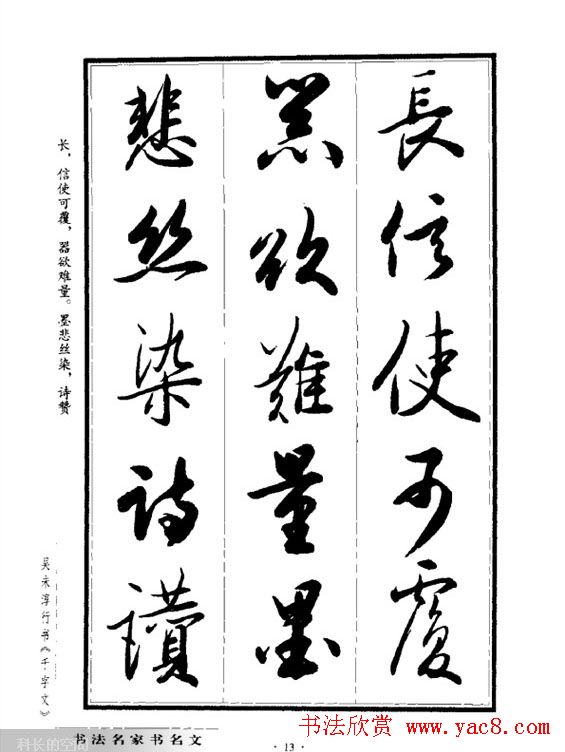 長信使可覆
器欲難量墨
悲絲染詩讃
长，信使可覆，器欲难量。墨悲丝染，诗赞
吴未淳行书《千字文》
书法名家书名文
科长的空间
· 13 ·
书法欣赏 www.yac8.com